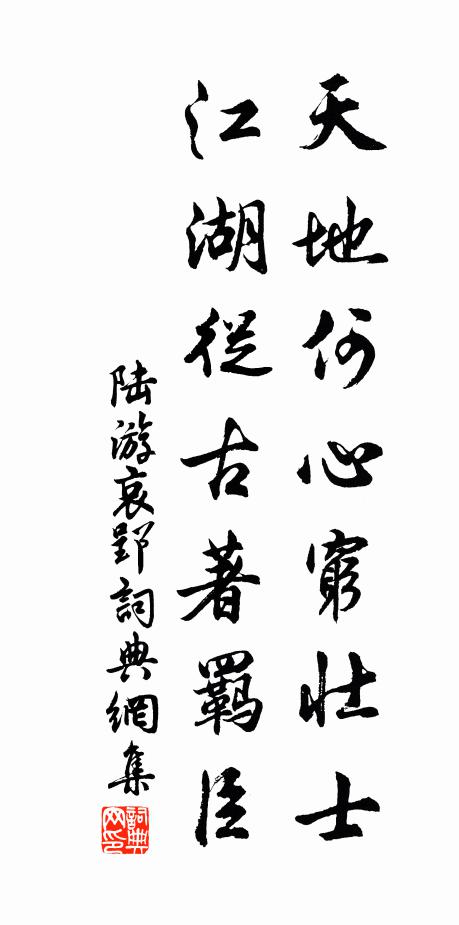 天地何心窮壯士
江湖從古著羈臣
陆游哀郢詞典網集
詞典网印